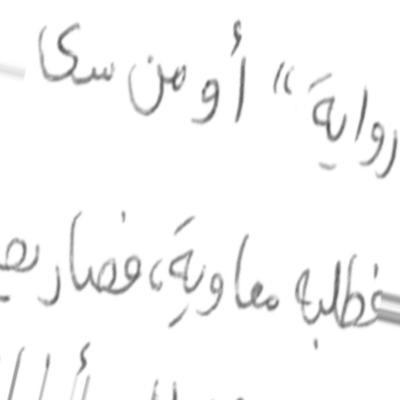 رواية " أو من سكى
فطلبه معاوية، فصار يص